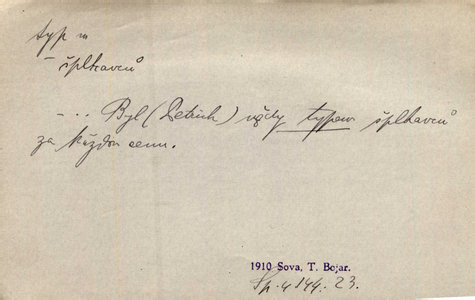 typ m
– šplhavců
– .. Byl (Detrich) vždy typem šplhavců
za každou cenu.
1910 Sova, T. Bojar.
Sp. 4 144. 23.